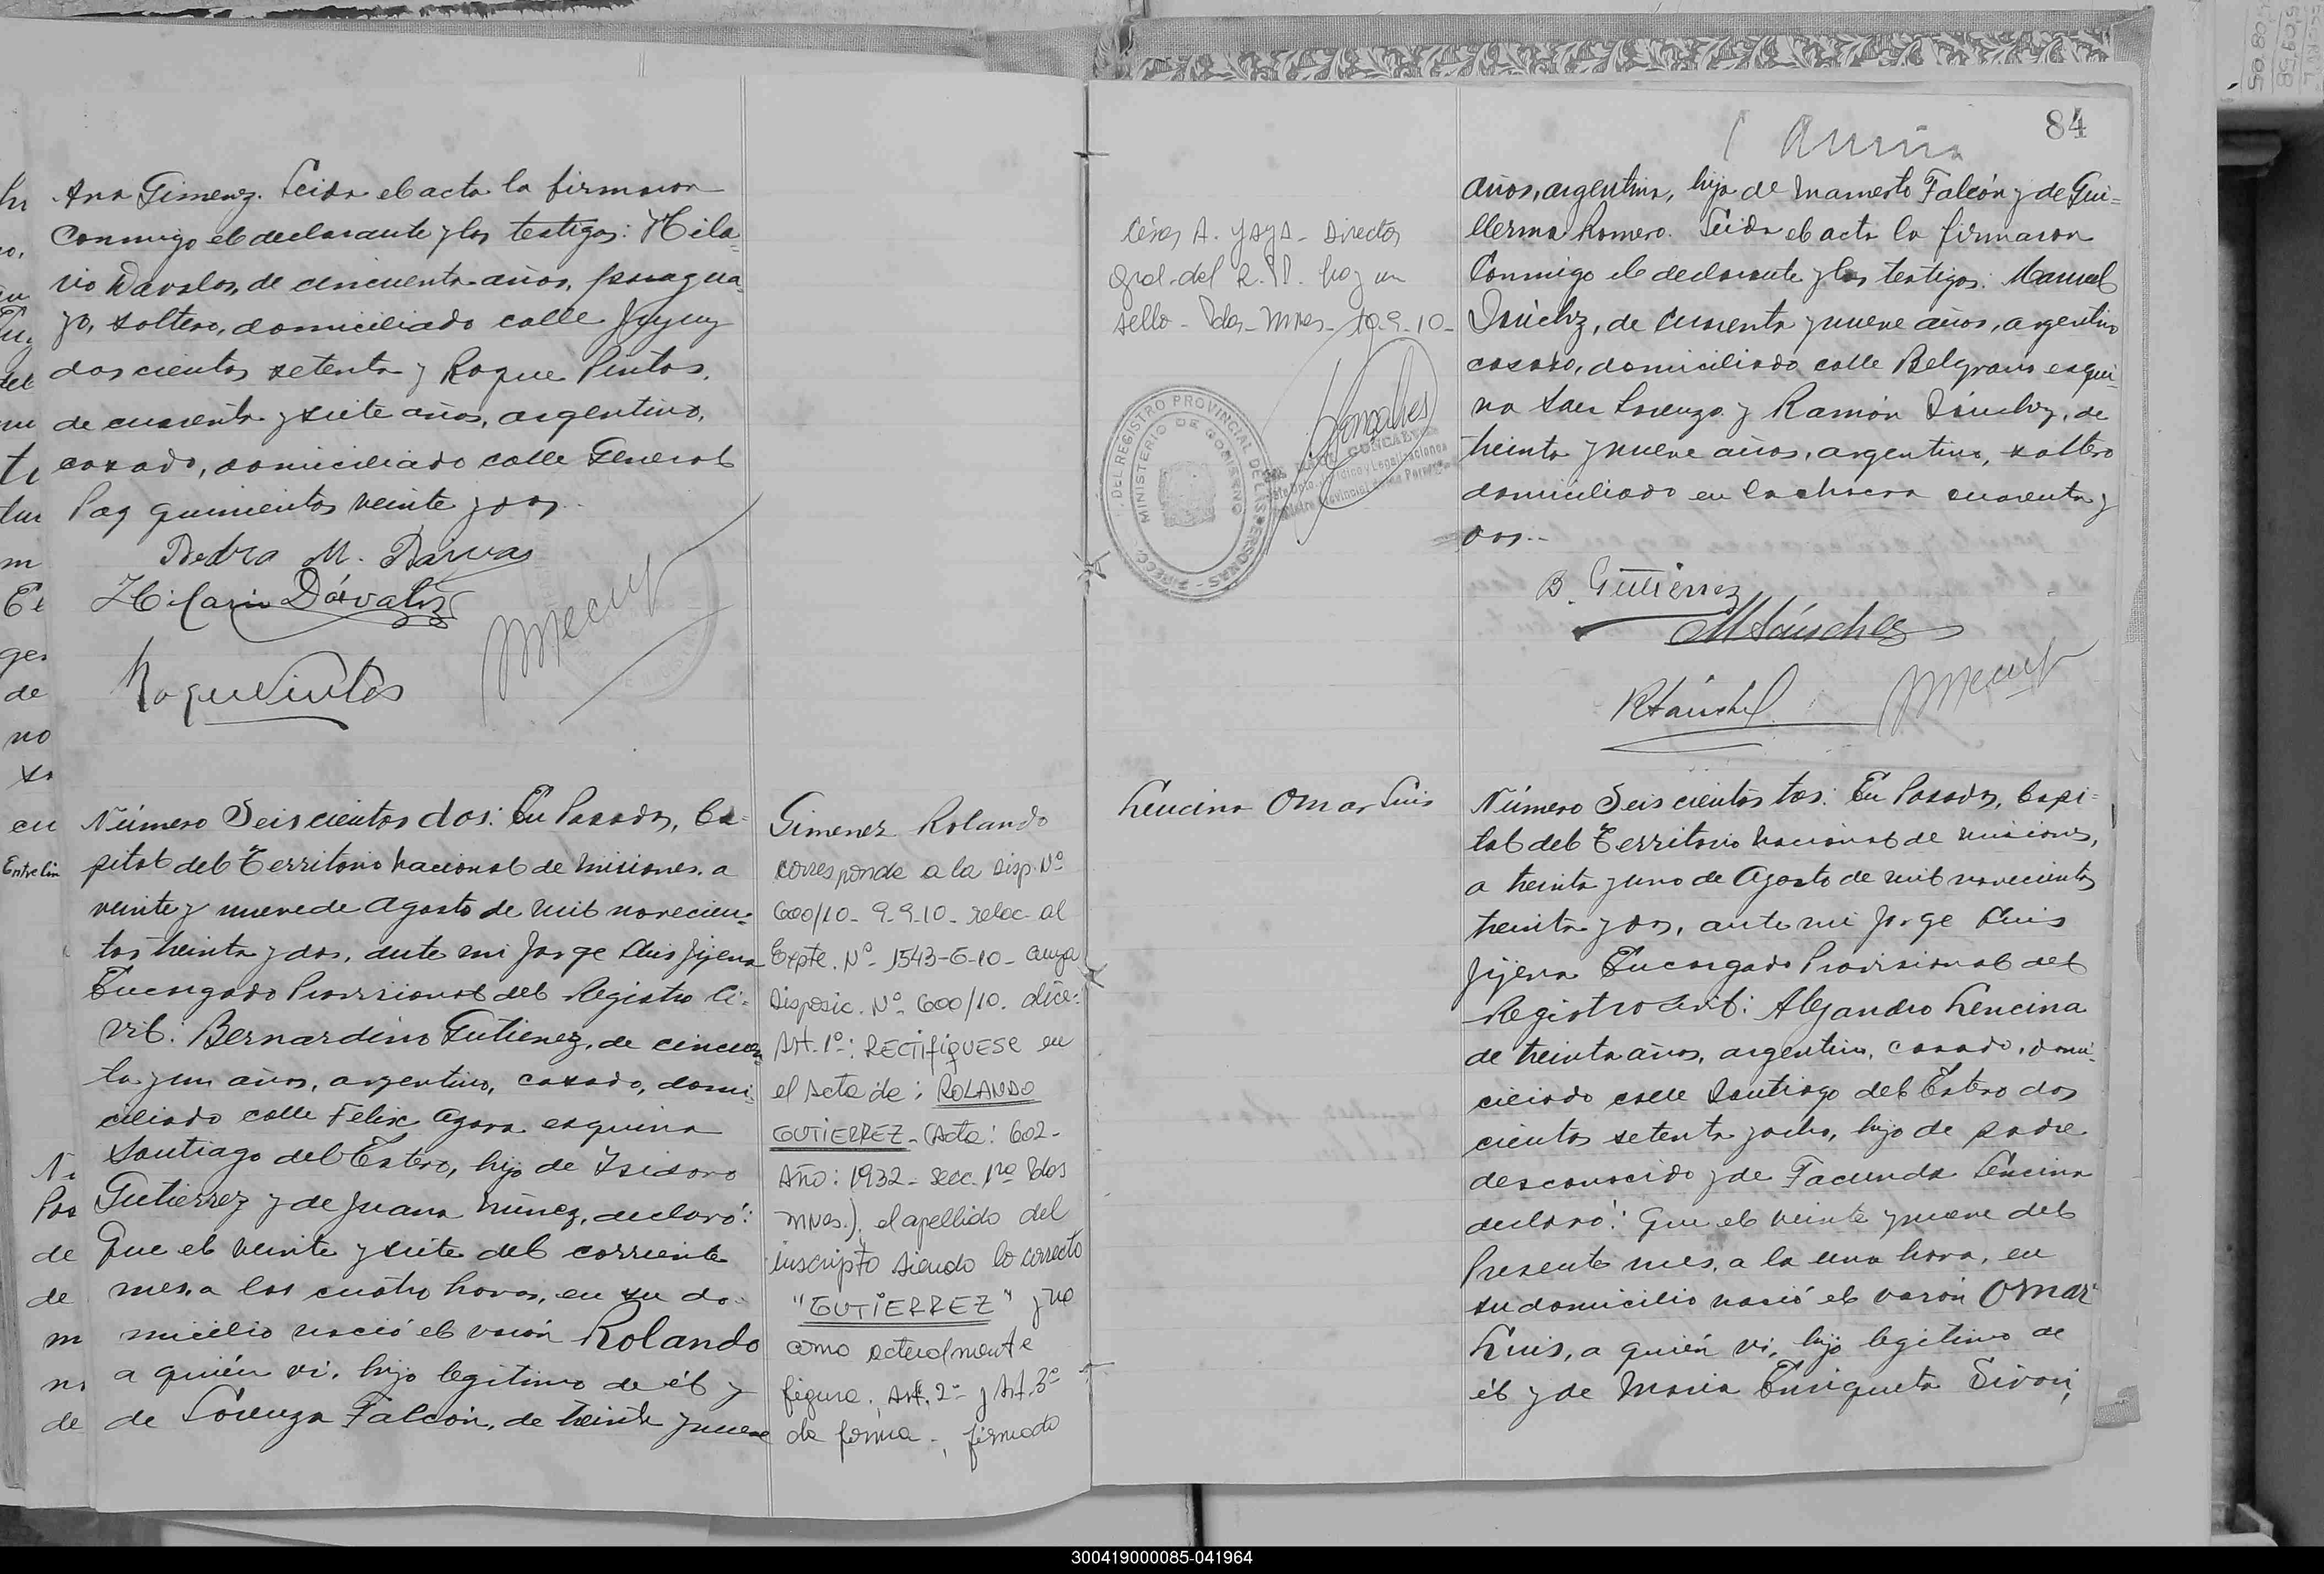 Ana Gimenez. Leida el acta la firmaron
conmigo el declarante y los testigos: Hila-
rio Davalos, de cincuenta años, paragua-
yo, soltero, domiciliado calle Jujuy
doscientos setenta y Roque Pintos,
de cuarenta y siete años, argentino,
casado, domiciliado calle General
Paz quinientos veinte y dos.
Hilario Dávalos
Roque Pintos
Número Seiscientos dos: En Posadas, Ca-
pital del Territorio Nacional de Misiones, a
veinte y nueve de Agosto de mil novecien-
tos treinta y dos, ante mi Jorge Luis Jijena
Encargado Provisional del Registro Ci-
vil: Bernardino Gutierrez, de cincuen-
ta y un años, argentino, casado, domi-
ciliado calle Felix Azara esquina
Santiago del Estero, hijo de Isidoro
Gutierrez y de Juana Núñez, declaró:
Que el veinte y siete del corriente
mes, a las cuatro horas, en su do-
micilio nació el varón Rolando
a quién vi, hijo legitimo de él y
de Lorenza Falcón, de treinta y nueve
Gimenez Rolando
corresponde a la Disp. Nº
600/10 - 9-9-10 - relac. al
Expte. Nº - 1543-G-10 - cuya
Disposic. Nº - 600/10. dice:
Art. 1º: RECTIFIQUESE en
el Acta de: ROLANDO
GUTIERREZ - (Acta: 602 -
Año: 1932 - Secc. 1ra Pdas
Mnes.), el apellido del
inscripto siendo lo correcto
"GUTIERREZ" y no
como actualmente
figura. Art. 2º y Art. 3º
de forma -, firmado
84
César A. Yaya - Director
Gral. del R.P.P. hay un
sello - Pdas - Mnes - 10-9-10-
DIRECC. DEL REGISTRO PROVINCIAL DE LAS PERSONAS
MINISTERIO DE GOBIERNO
años, argentina, hija de Mamerto Falcón y de Gui-
llerma Romero. Leida el acta la firmaron
conmigo el declarante y los testigos: Manuel
Sánchez, de cuarenta y nueve años, argentino
casado, domiciliado calle Belgrano esqui-
na San Lorenzo y Ramón Sánchez, de
treinta y nueve años, argentino, soltero
domiciliado en la chacra cuarenta y
dos.-
B. Gutierrez
M Sánchez
R Sánchez
Lencina Omar Luis
Número Seiscientos tres: En Posadas, Capi-
tal del Territorio Nacional de Misiones,
a treinta y uno de Agosto de mil novecientos
treinta y dos, ante mi Jorge Luis
Jijena Encargado Provisional del
Registro Civil: Alejandro Lencina
de treinta años, argentino, casado, domi-
ciliado calle Santiago del Estero dos
cientos setenta y ocho, hijo de padre
desconocido y de Facunda Lencina
declaró: Que el veinte y nueve del
presente mes, a la una hora, en
su domicilio nació el varón Omar
Luis, a quién vi, hijo legitimo de
él y de Maria Enriqueta
300419000085-041964